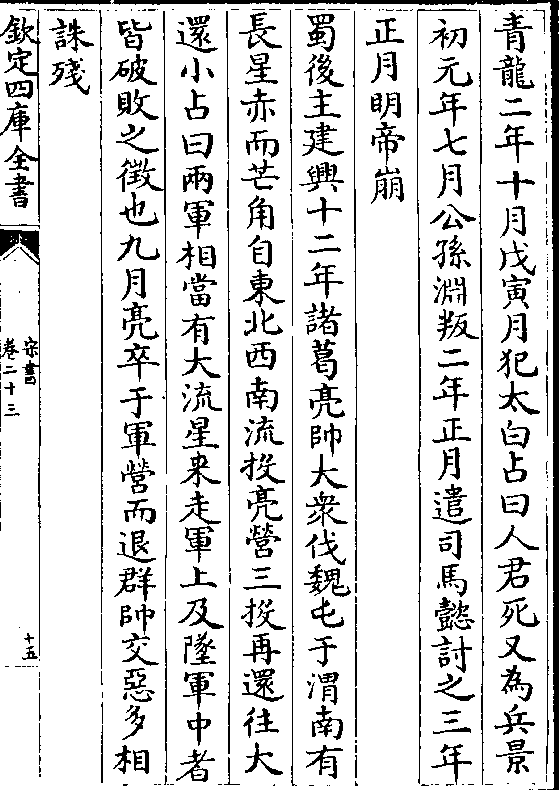 青龍二年十月戊寅月犯太白占曰人君死又為兵景
初元年七月公孫淵叛二年正月遣司馬懿討之三年
正月明帝崩
蜀後主建興十二年諸葛亮帥大衆伐魏屯于渭南有
長星赤而芒角自東北西南流投亮營三投再還往大
還小占曰兩軍相當有大流星来走軍上及墜軍中者
皆破敗之徴也九月亮卒于軍營而退群帥交惡多相
誅殘
欽定四庫全書
宋書
卷二十三
十五